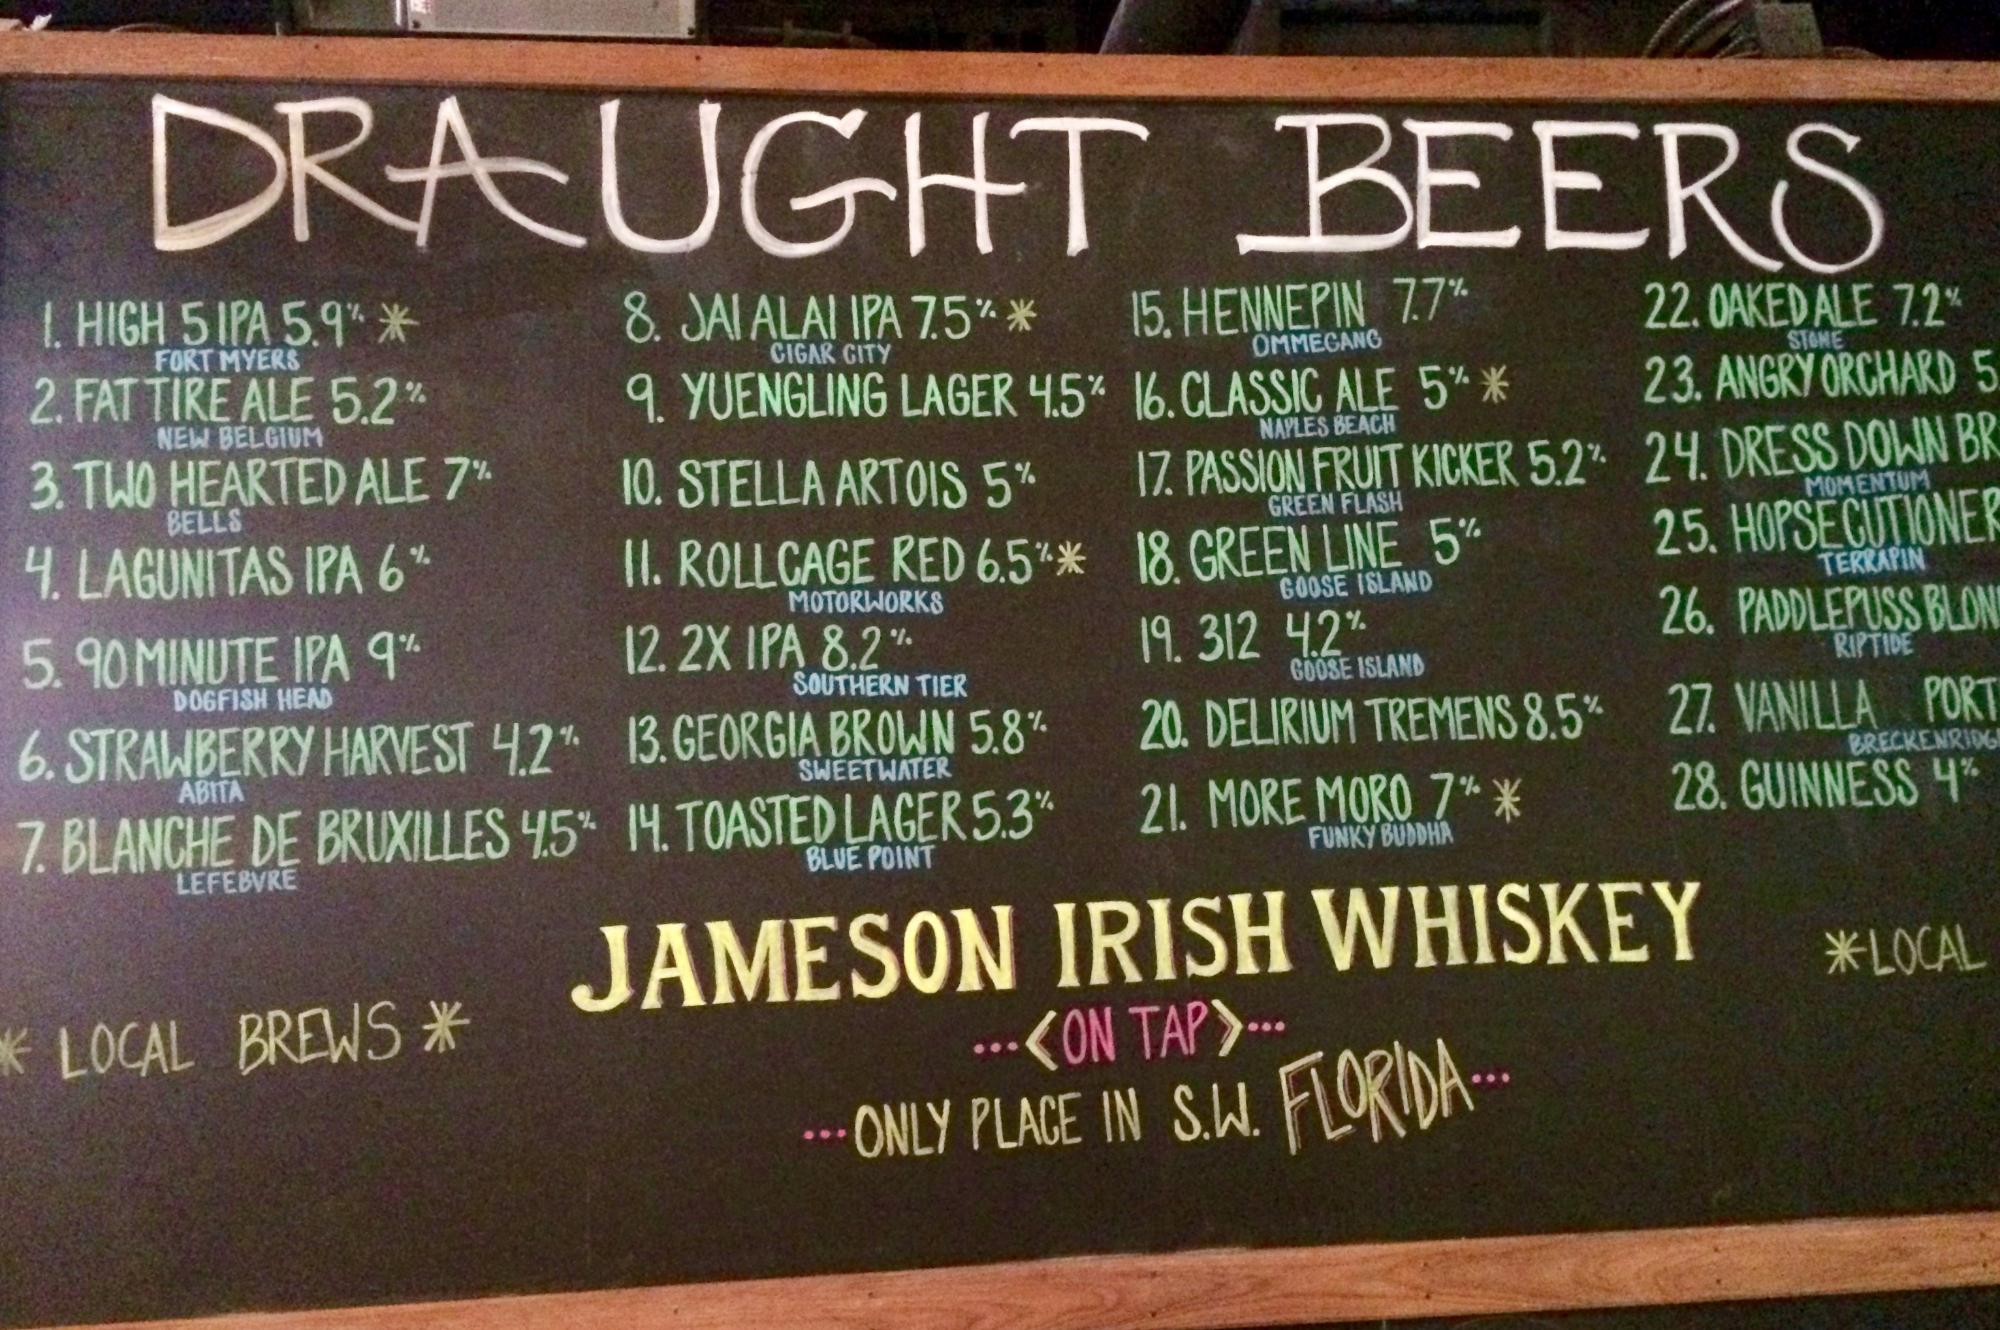 DRAUGHT BEERS
1. HIGH 5 IPA 5.9% *
FORT MYERS
2. FAT TIRE ALE 5.2%
NEW BELGIUM
3. TWO HEARTED ALE 7%
BELLS
4. LAGUNITAS IPA 6%
5. 90 MINUTE IPA 9%
DOGFISH HEAD
6. STRAWBERRY HARVEST 4.2%
ABITA
7. BLANCHE DE BRUXILLES 4.5%
LEFEBVRE
8. JAI ALAI IPA 7.5% *
CIGAR CITY
9. YUENGLING LAGER 4.5%
10. STELLA ARTOIS 5%
11. ROLLCAGE RED 6.5% *
MOTORWORKS
12. 2X IPA 8.2%
SOUTHERN TIER
13. GEORGIA BROWN 5.8%
SWEETWATER
14. TOASTED LAGER 5.3%
BLUE POINT
15. HENNEPIN 7.7%
OMMEGANG
16. CLASSIC ALE 5% *
NAPLES BEACH
17. PASSION FRUIT KICKER 5.2%
GREEN FLASH
18. GREEN LINE 5%
GOOSE ISLAND
19. 312 4.2%
GOOSE ISLAND
20. DELIRIUM TREMENS 8.5%
21. MORE MORO 7% *
FUNKY BUDDHA
22. OAKED ALE 7.2%
STONE
23. ANGRY ORCHARD 5
24. DRESS DOWN BR
MOMENTUM
25. HOPSECUTIONER
TERRAPIN
26. PADDLEPUSS BLON
RIPTIDE
27. VANILLA PORT
BRECKENRIDG
28. GUINNESS 4%
* LOCAL BREWS *
JAMESON IRISH WHISKEY
...<ON TAP>...
...ONLY PLACE IN S.W. FLORIDA...
*LOCAL